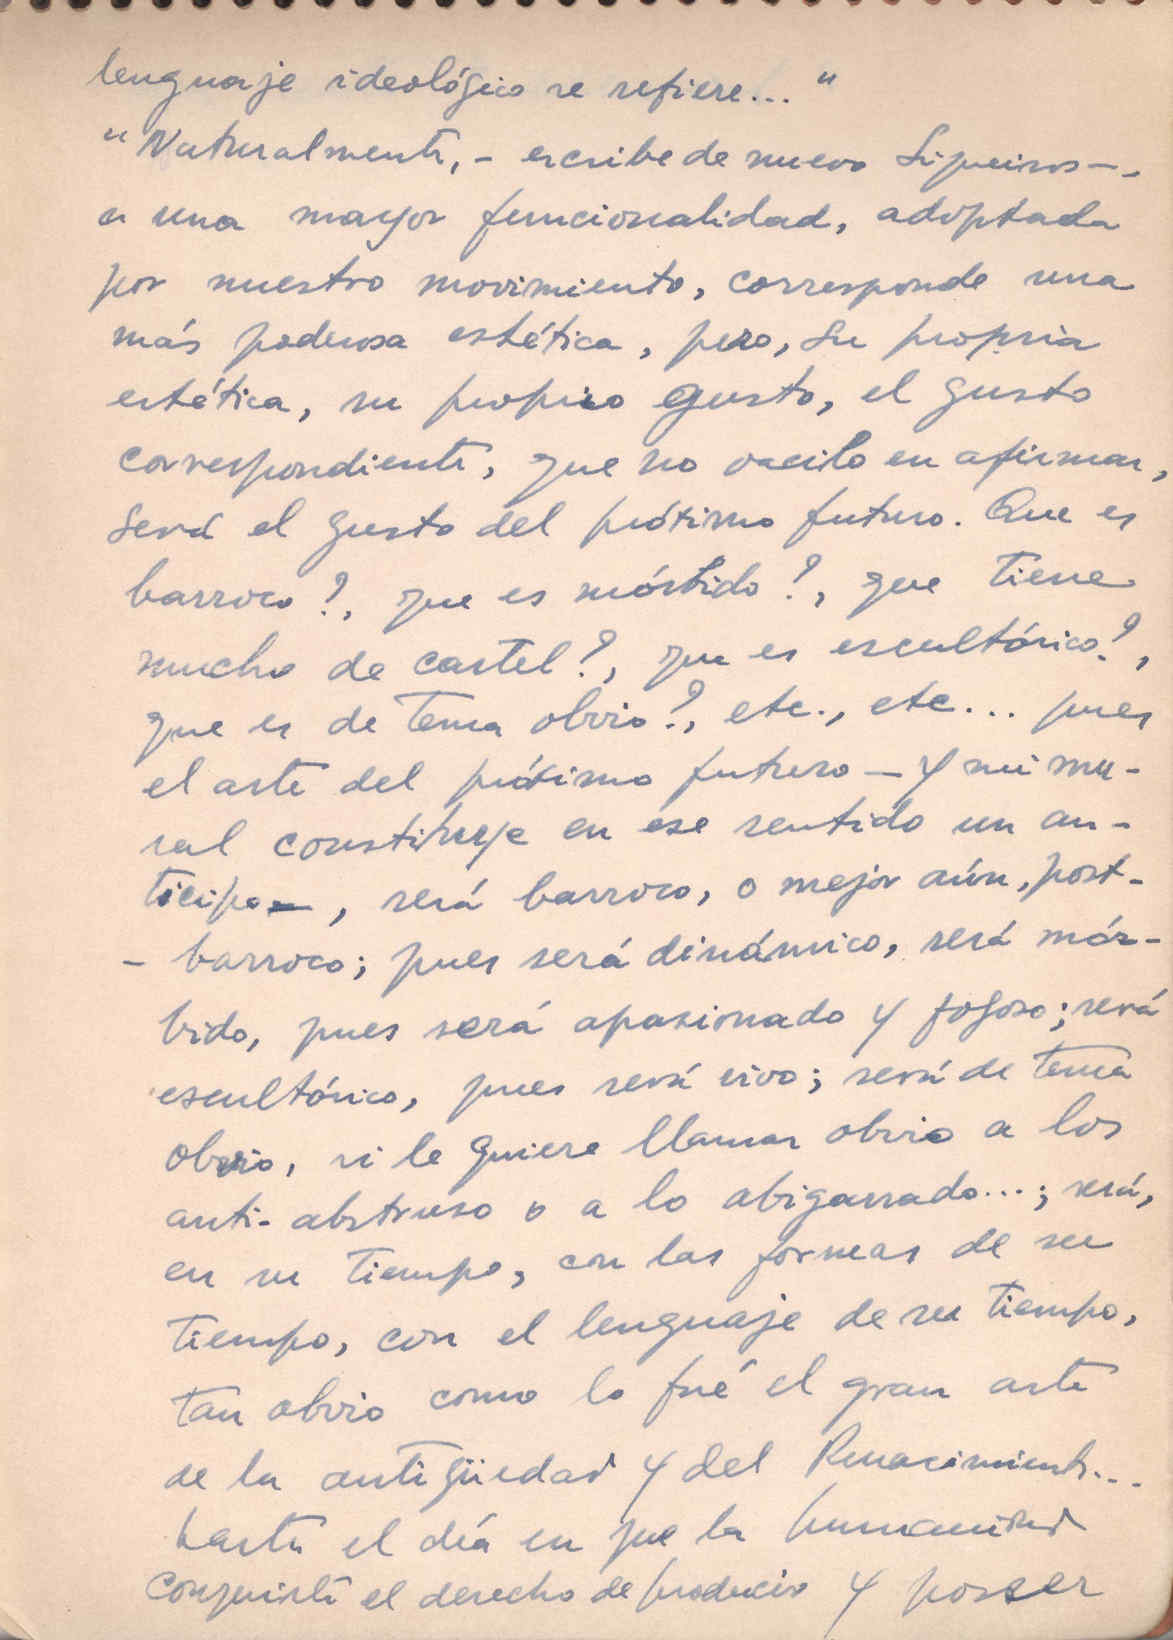 lenguaje ideológico se refiere... "
"Naturalmente, - escribe de nuevo Siqueiros -
a una mayor funcionalidad, adoptada
por nuestro movimiento, corresponde una
más poderosa estética, pero, su propria
estética, su propio gusto, el gusto
correspondiente, que no vacilo en afirmar,
será el gusto del próximo futuro. Que es
barroco?, que es mórbido?, que tiene
mucho de cartel?, que es escultórico?,
que es de tema obvio?, etc., etc... pues
el arte del próximo futuro - y mi mu-
ral constituye en ese sentido un an-
ticipo -, será barroco, o mejor aún, post-
- barroco; pues será dinámico, será mór-
bido, pues será apasionado y fogoso; será
escultórico, pues será vivo; será de tema
obvio, si le quiere llamar obvio a los
anti-abstruso o a lo abigarrado...; será,
en su tiempo, con las formas de su
tiempo, con el lenguaje de su tiempo,
tan obvio como lo fué el gran arte
de la antigüedad y del Renacimiento...
hasta el día en que la humanidad
conquiste el derecho de producir y poseer